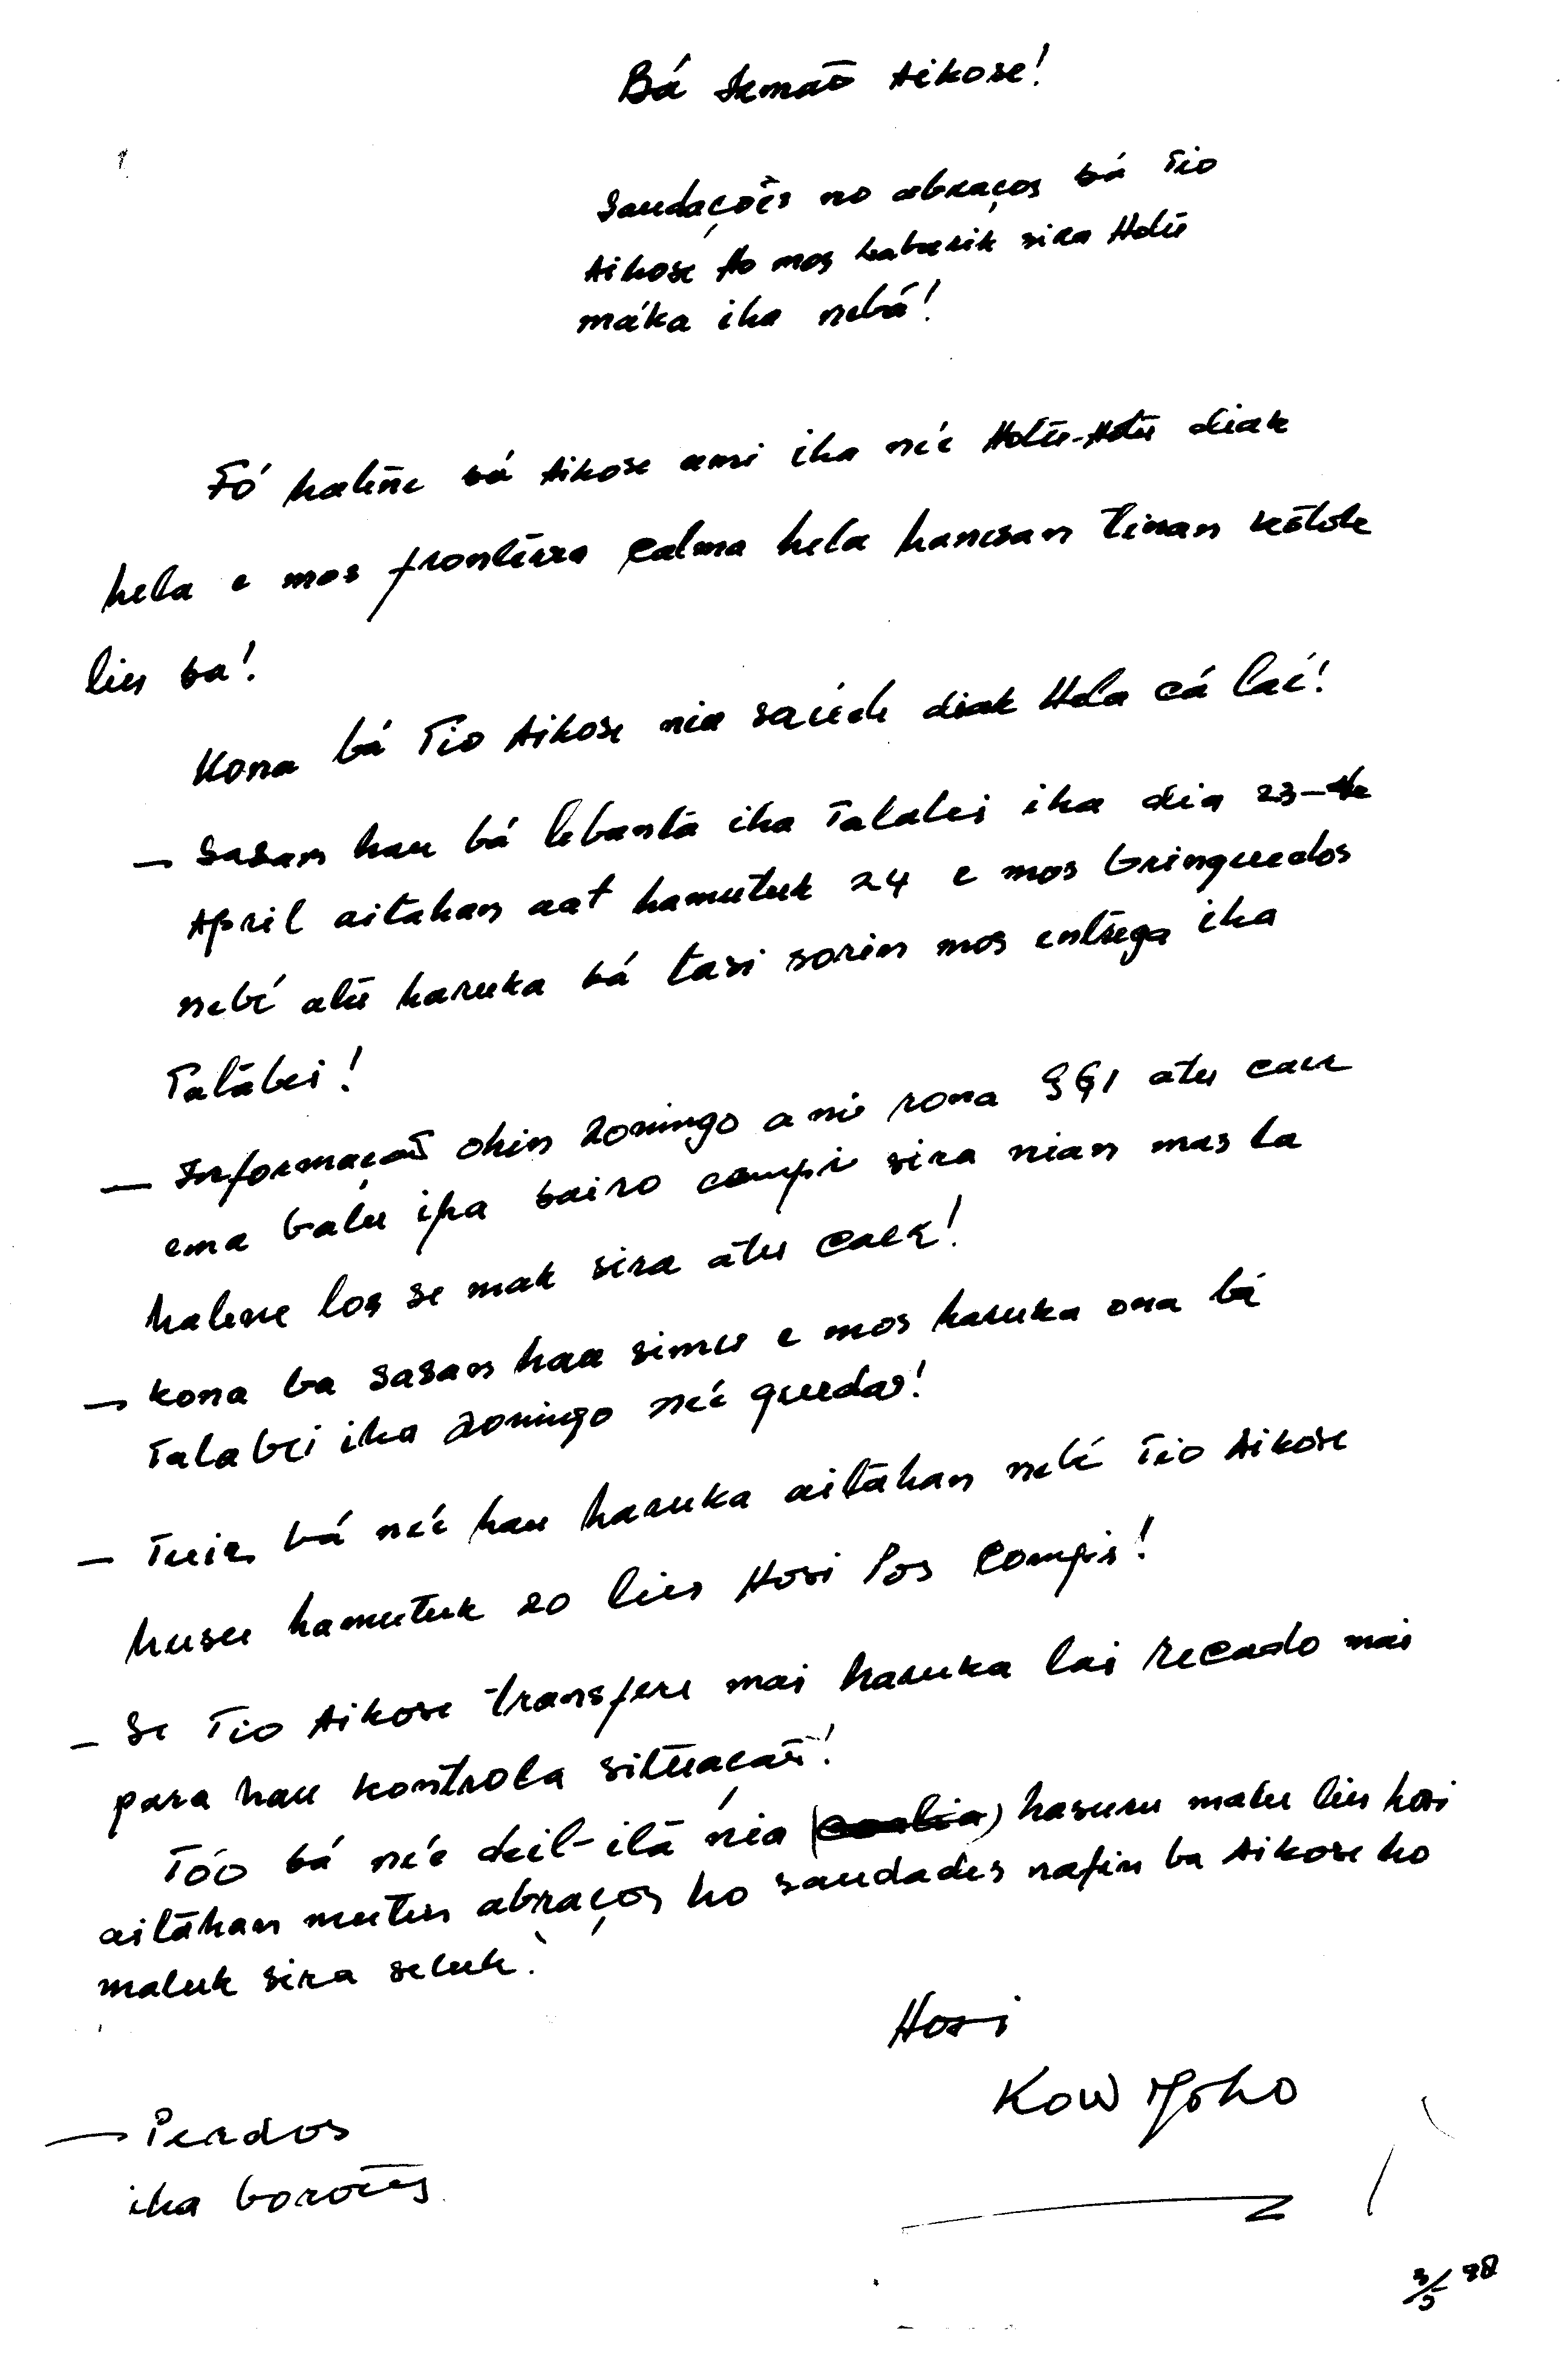 Bá Irmaõ Aikose!
Saudações no abraços bá Tio
Aikose ho mos babarik sira Hotu
máka iha nebá!
Fó hatene bá Aikose ami iha neé Hotu-Hotu diak
hela e mos frontéira calma hela hanesan tinan kotok
liu ba!
Kona bá Tio Aikose nia saúde diak Hela cá laé!
— Sasan hau bá lebanta iha Talabei iha dia 23-de
April aitahan aat hamutuk 24 e mos brinquedos
nebé atu haruka bá tasi sorin mos entrega iha
Talabei!
— Informaçaõ ohin Domingo ami rona SGI atu caer
ema balu iha bairo compi sira nian mas la
hatene los se mak sira atu caer!
— Kona ba sasan hau simu e mos haruka ona bá
Talabei iha Domingo neé quedas!
— Tuir bá neé hau haruka aitahan nebé Tio Aikose
husu hamutuk 20 liu Hosi Pos Compis!
— Se Tio Aikose transfere mai haruka lai recado mai
para hau kontrola situaçaõ!
Tóo bá neé deit-itá nia hasuru malu liu hosi
aitahan mutun abraços ho saudades nafin ba Aikose ho
maluk sira seluk!
Hosi
Kow Moho
— Perdos
iha boroēs
3/5 98